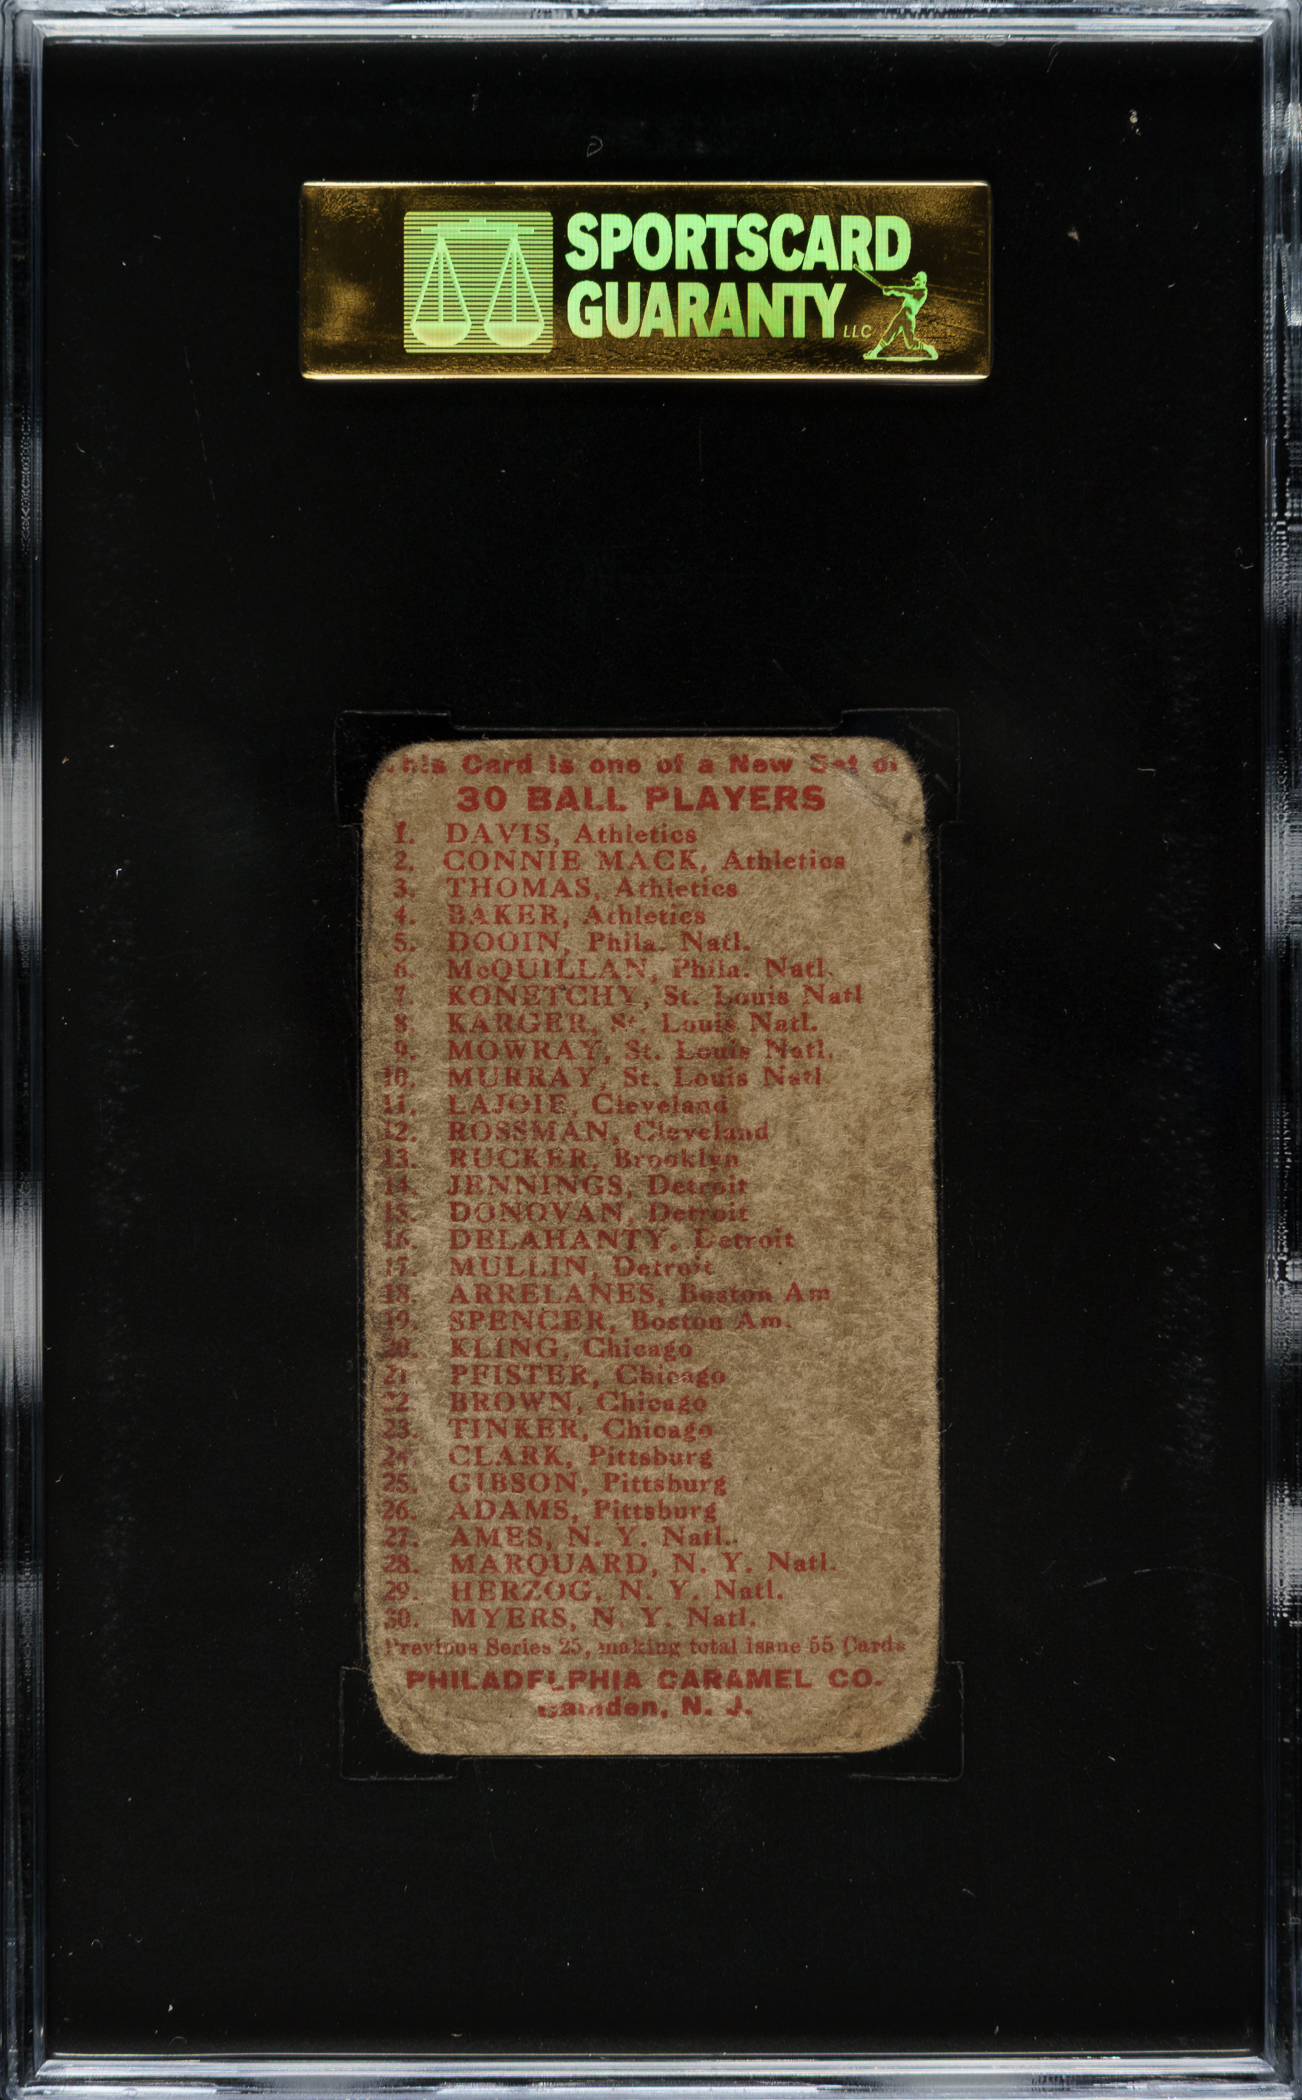 SPORTSCARD
GUARANTY LLC
This Card is one of a New Set of
30 BALL PLAYERS
1. DAVIS, Athletics
2. CONNIE MACK, Athletics
3. THOMAS, Athletics
4. BAKER, Athletics
5. DOOIN, Phila. Natl.
6. McQUILLAN, Phila. Natl.
7. KONETCHY, St. Louis Natl
8. KARGER, St. Louis Natl.
9. MOWRAY, St. Louis Natl.
10. MURRAY, St. Louis Natl
11. LAJOIE, Cleveland
12. ROSSMAN, Cleveland
13. RUCKER, Brooklyn
14. JENNINGS, Detroit
15. DONOVAN, Detroit
16. DELAHANTY, Detroit
17. MULLIN, Detroit
18. ARRELANES, Boston Am
19. SPENCER, Boston Am.
20. KLING, Chicago
21 PFISTER, Chicago
22 BROWN, Chicago
23. TINKER, Chicago
24. CLARK, Pittsburg
25. GIBSON, Pittsburg
26. ADAMS, Pittsburg
27. AMES, N. Y. Natl.
28. MARQUARD, N. Y. Natl.
29. HERZOG, N. Y. Natl.
30. MYERS, N. Y. Natl.
Previous Series 25, making total issue 55 Cards
PHILADELPHIA CARAMEL CO.
Camden, N. J.